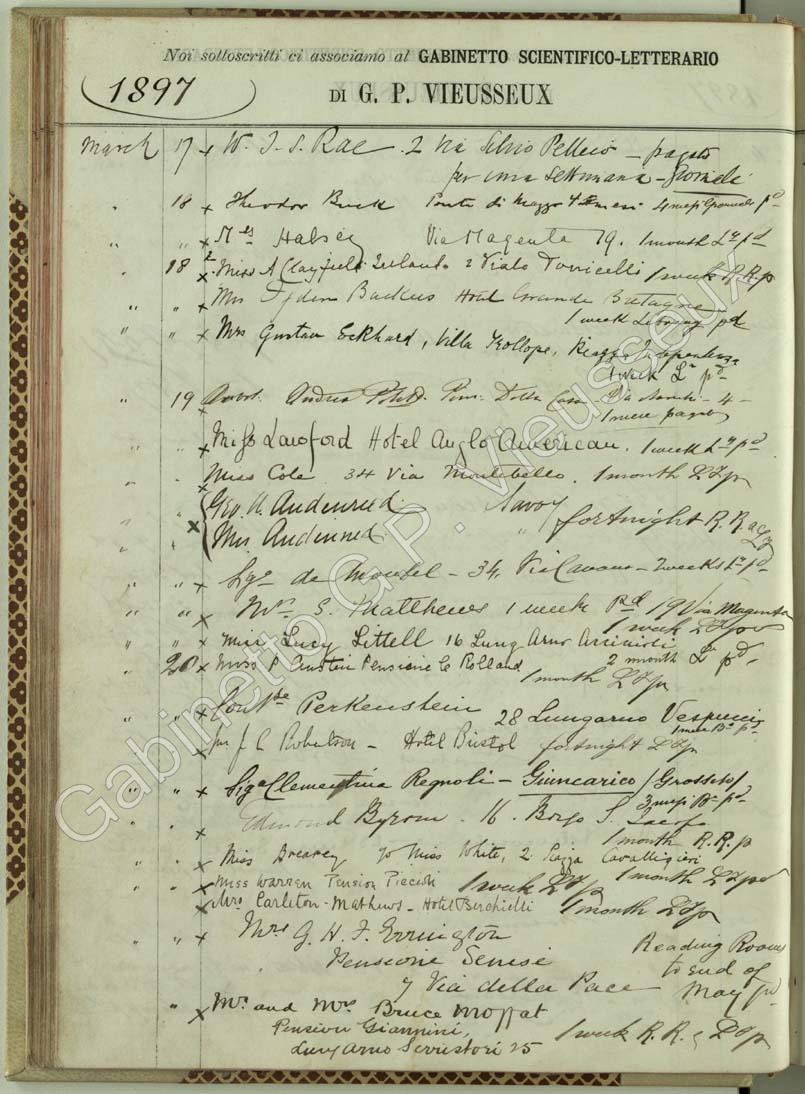 Noi sottoscritti ci associamo al GABINETTO SCIENTIFICO-LETTERARIO
1897
DI G. P. VIEUSSEUX
March 17 x W. J. S. Rae 2 Via Silvio Pellico – pagato
per una settimana – giornali
" 18 x Theodor Buck Ponte di Mezzo 4 mesi Giornali pd
" " x Mrs Halsey Via Magenta 19. 1 month Ly pd
" 18 x Miss A Clayfield Ireland 2 Viale Torricelli 1 week R.R. p
" " x Mrs Backus Hotel Grande Bretagne
1 week Library pd
" " x Mrs Gustav Eckhard, Villa Trollope, Piazza Independenza
1 week Ly pd
" 19 x Andrea Pens. Della 4 -
1 mese pagato
" x Miss Lawford Hotel Anglo American. 1 week Ly pd
" x Miss Cole 34 Via Montebello. 1 month Ly p
" x Geo. A. Audenried Savoy
Mrs Audenried " fortnight R.R a Ly
" " x Sga de – 34, Via Cavour – 2 weeks Ly pd
" " x Mrs S. Matthews 1 week Pd 19 Via Magenta
1 week Ly pd
" " x Miss Lucy Littell 16 Lung Arno Acciaioli
2 month Ly pd.
" 20 x Miss P Austin Pensione Le Rolland
1 month Ly p
" " x Contsse Perkenstein 28 Lungarno Vespucci
1 mese pd
" x J C Robertson – Hotel Bristol fortnight Ly p
" " x Sga Clementina Regnoli – Giuncarico (Grosseto)
3 mesi pd
" x Edmond Byrom . 16. Borgo S. Jacopo
1 month R.R. p
" x Miss Brearey c/o Miss White, 2 Piazza Cavalleggieri
1 month Ly pd
" " x Miss Warren Pension Piccioli 1 week Ly p
x Mrs Carleton-Mathews – Hotel Berchielli 1 month Ly p
" " x Mrs G. H. F. Errington Reading Rooms
Pensione Senese to end of
7 Via della Pace May pd
" x Mr and Mrs Bruce Moffat
Pension Giannini, 1 week R.R. & Ly p
Lung Arno Serristori 25
Gabinetto G.P. Vieusseux